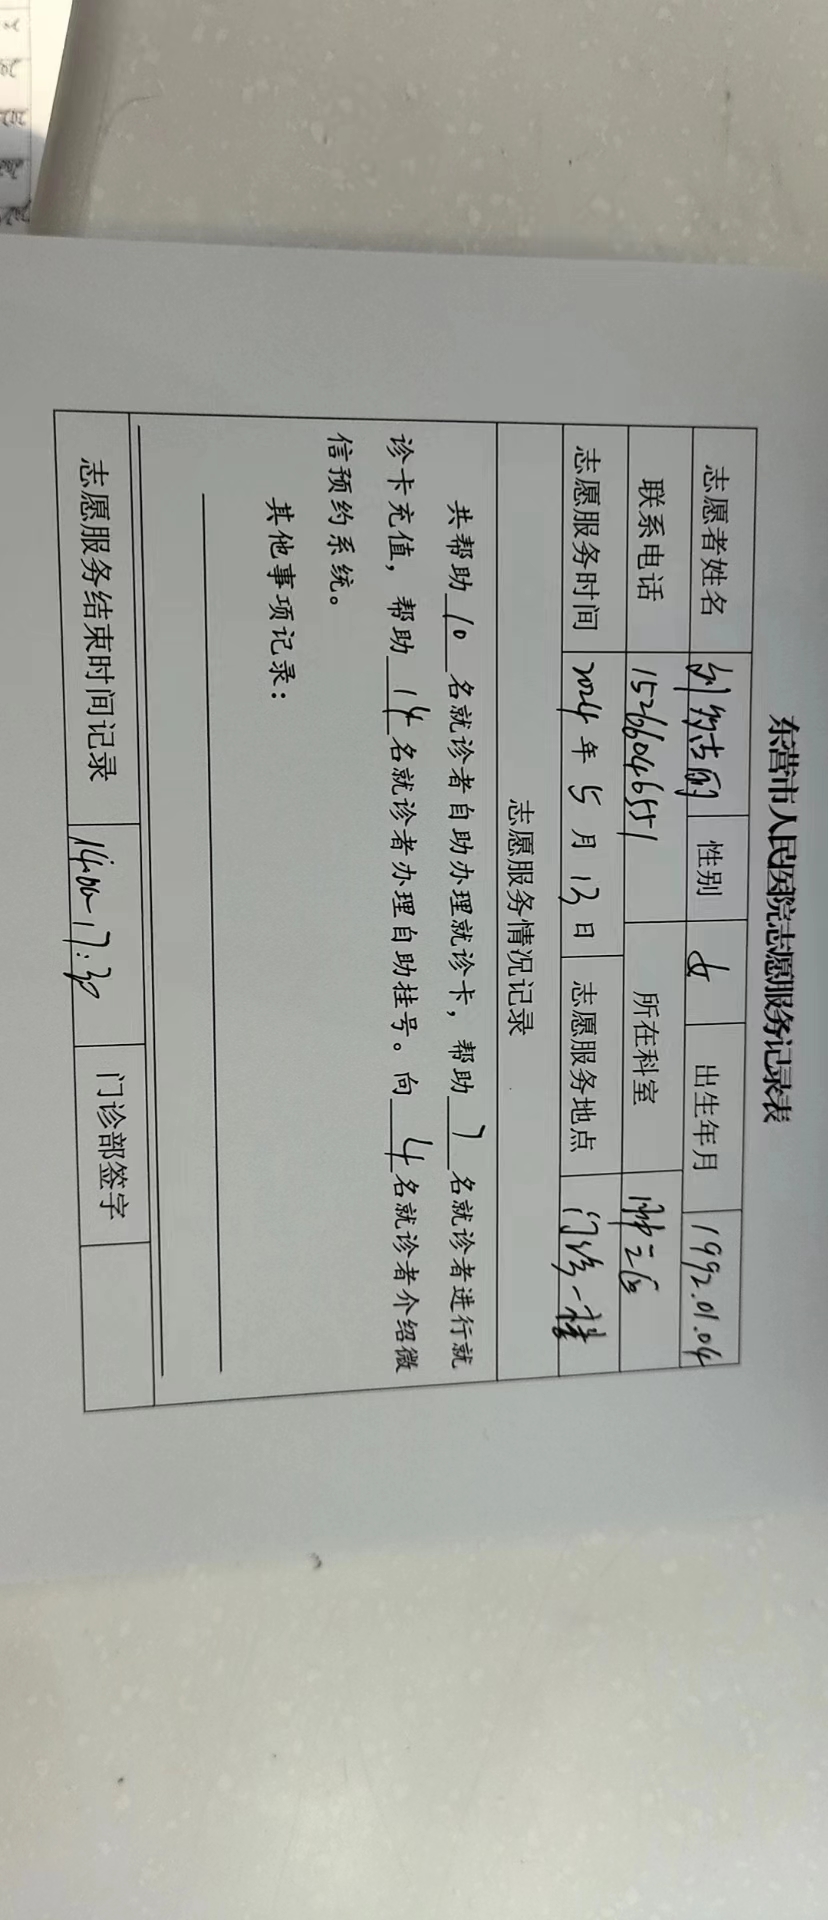 东营市人民医院志愿服务记录表
志愿者姓名 性别 女 出生年月 1992.01.04
联系电话 15266046551 所在科室
志愿服务时间 2024年5月13日 志愿服务地点 门诊一楼
志愿服务情况记录
共帮助10名就诊者自助办理就诊卡，帮助7名就诊者进行就
诊卡充值，帮助14名就诊者办理自助挂号。向4名就诊者介绍微
信预约系统。
其他事项记录：
志愿服务结束时间记录 14:00-17:30 门诊部签字